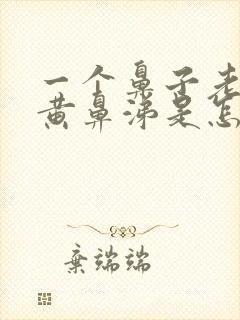 一个鼻子老
黄鼻涕是怎
弃端端